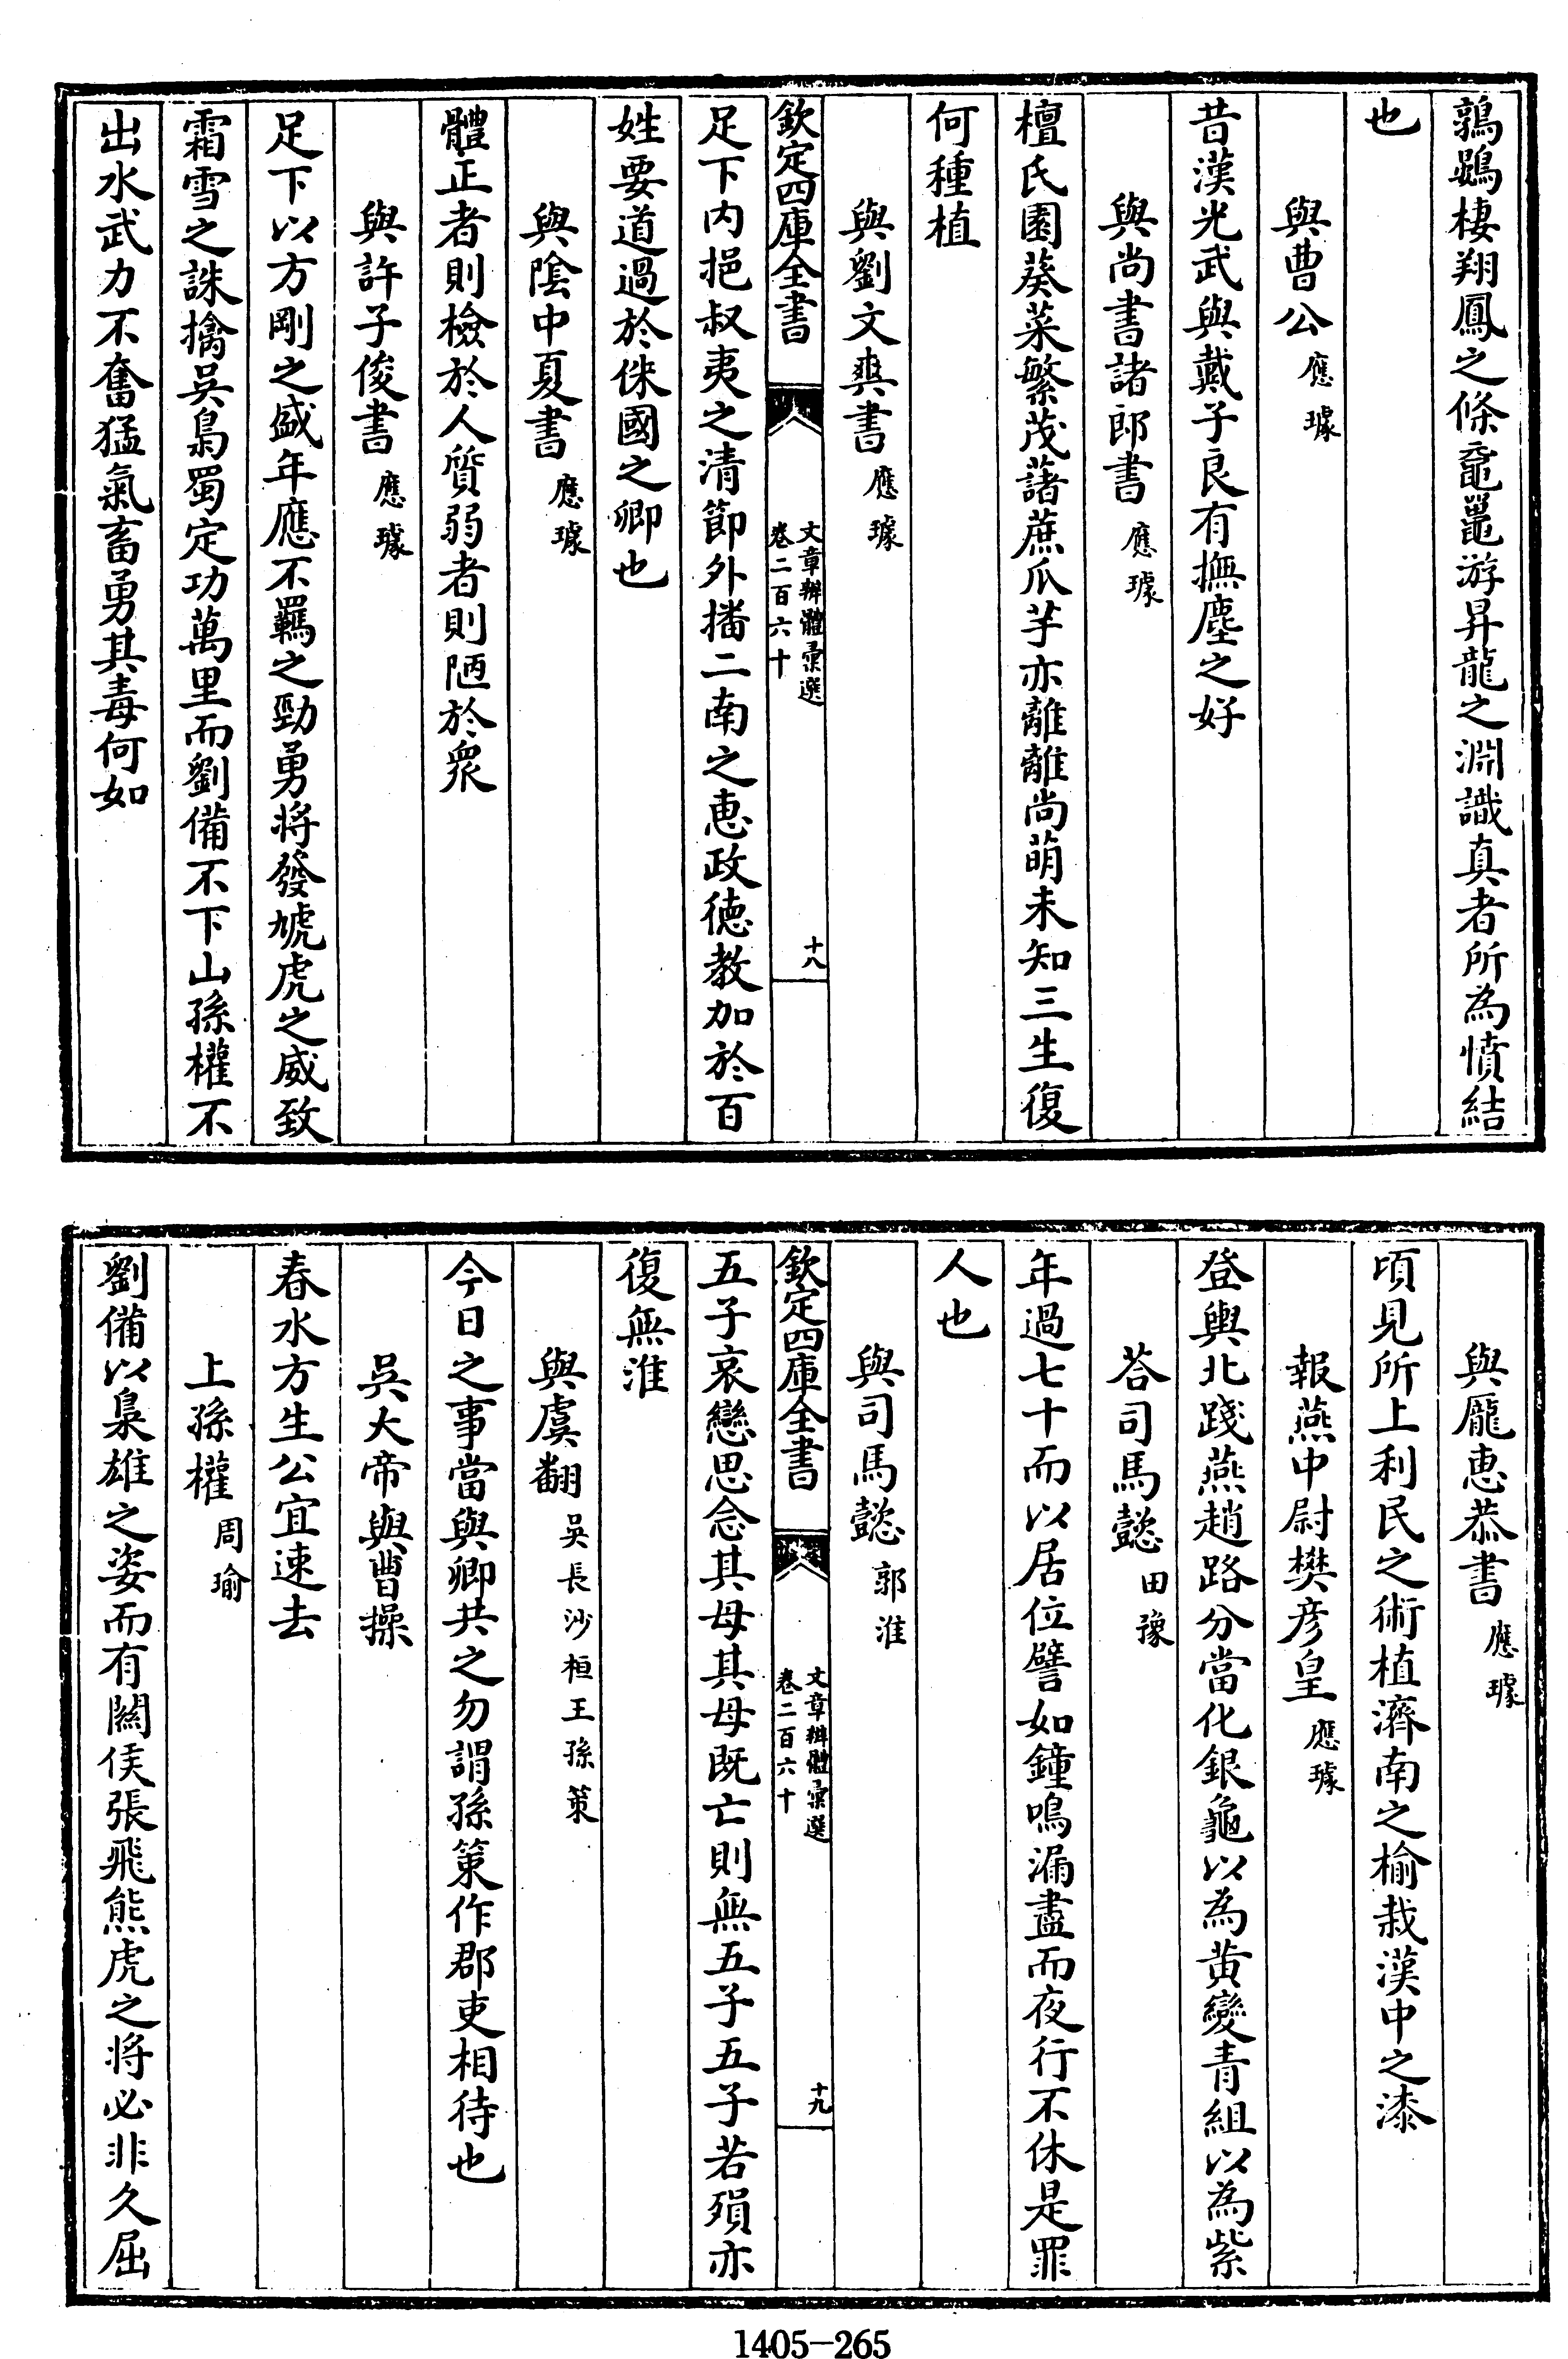 鶉鷃棲翔鳳之條黿鼉游昇龍之淵識真者所為憤結
也
與曹公應璩
昔漢光武與戴子良有撫塵之好
與尚書諸郎書應璩
檀氏園葵菜繁茂藷蔗瓜芋亦離離尚萌未知三生復
何種植
與劉文奭書應璩
欽定四庫全書
文章辨體彙選
卷二百六十
十八
足下内挹叔夷之清節外播二南之惠政德教加於百
姓要道過於侏國之卿也
與陰中夏書應璩
體正者則檢於人質弱者則陋於衆
與許子俊書應璩
足下以方剛之盛年應不羈之勁勇将發虓虎之威致
霜雪之誅擒吳梟蜀定功萬里而劉備不下山孫權不
出水武力不奮猛氣畜勇其毒何如
與龎惠恭書應璩
頃見所上利民之術植濟南之榆栽漢中之漆
報燕中尉樊彦皇應璩
登輿北踐燕趙路分當化銀龜以為黄變青組以為紫
荅司馬懿田豫
年過七十而以居位譬如鐘鳴漏盡而夜行不休是罪
人也
與司馬懿郭淮
欽定四庫全書
文章辨體彙選
卷二百六十
十九
五子哀戀思念其母其母既亡則無五子五子若殞亦
復無淮
與虞翻吳長沙桓王孫策
今日之事當與卿共之勿謂孫策作郡吏相待也
吳大帝與曹操
春水方生公宜速去
上孫權周瑜
劉備以梟雄之姿而有關侯張飛熊虎之将必非久屈
1405-265